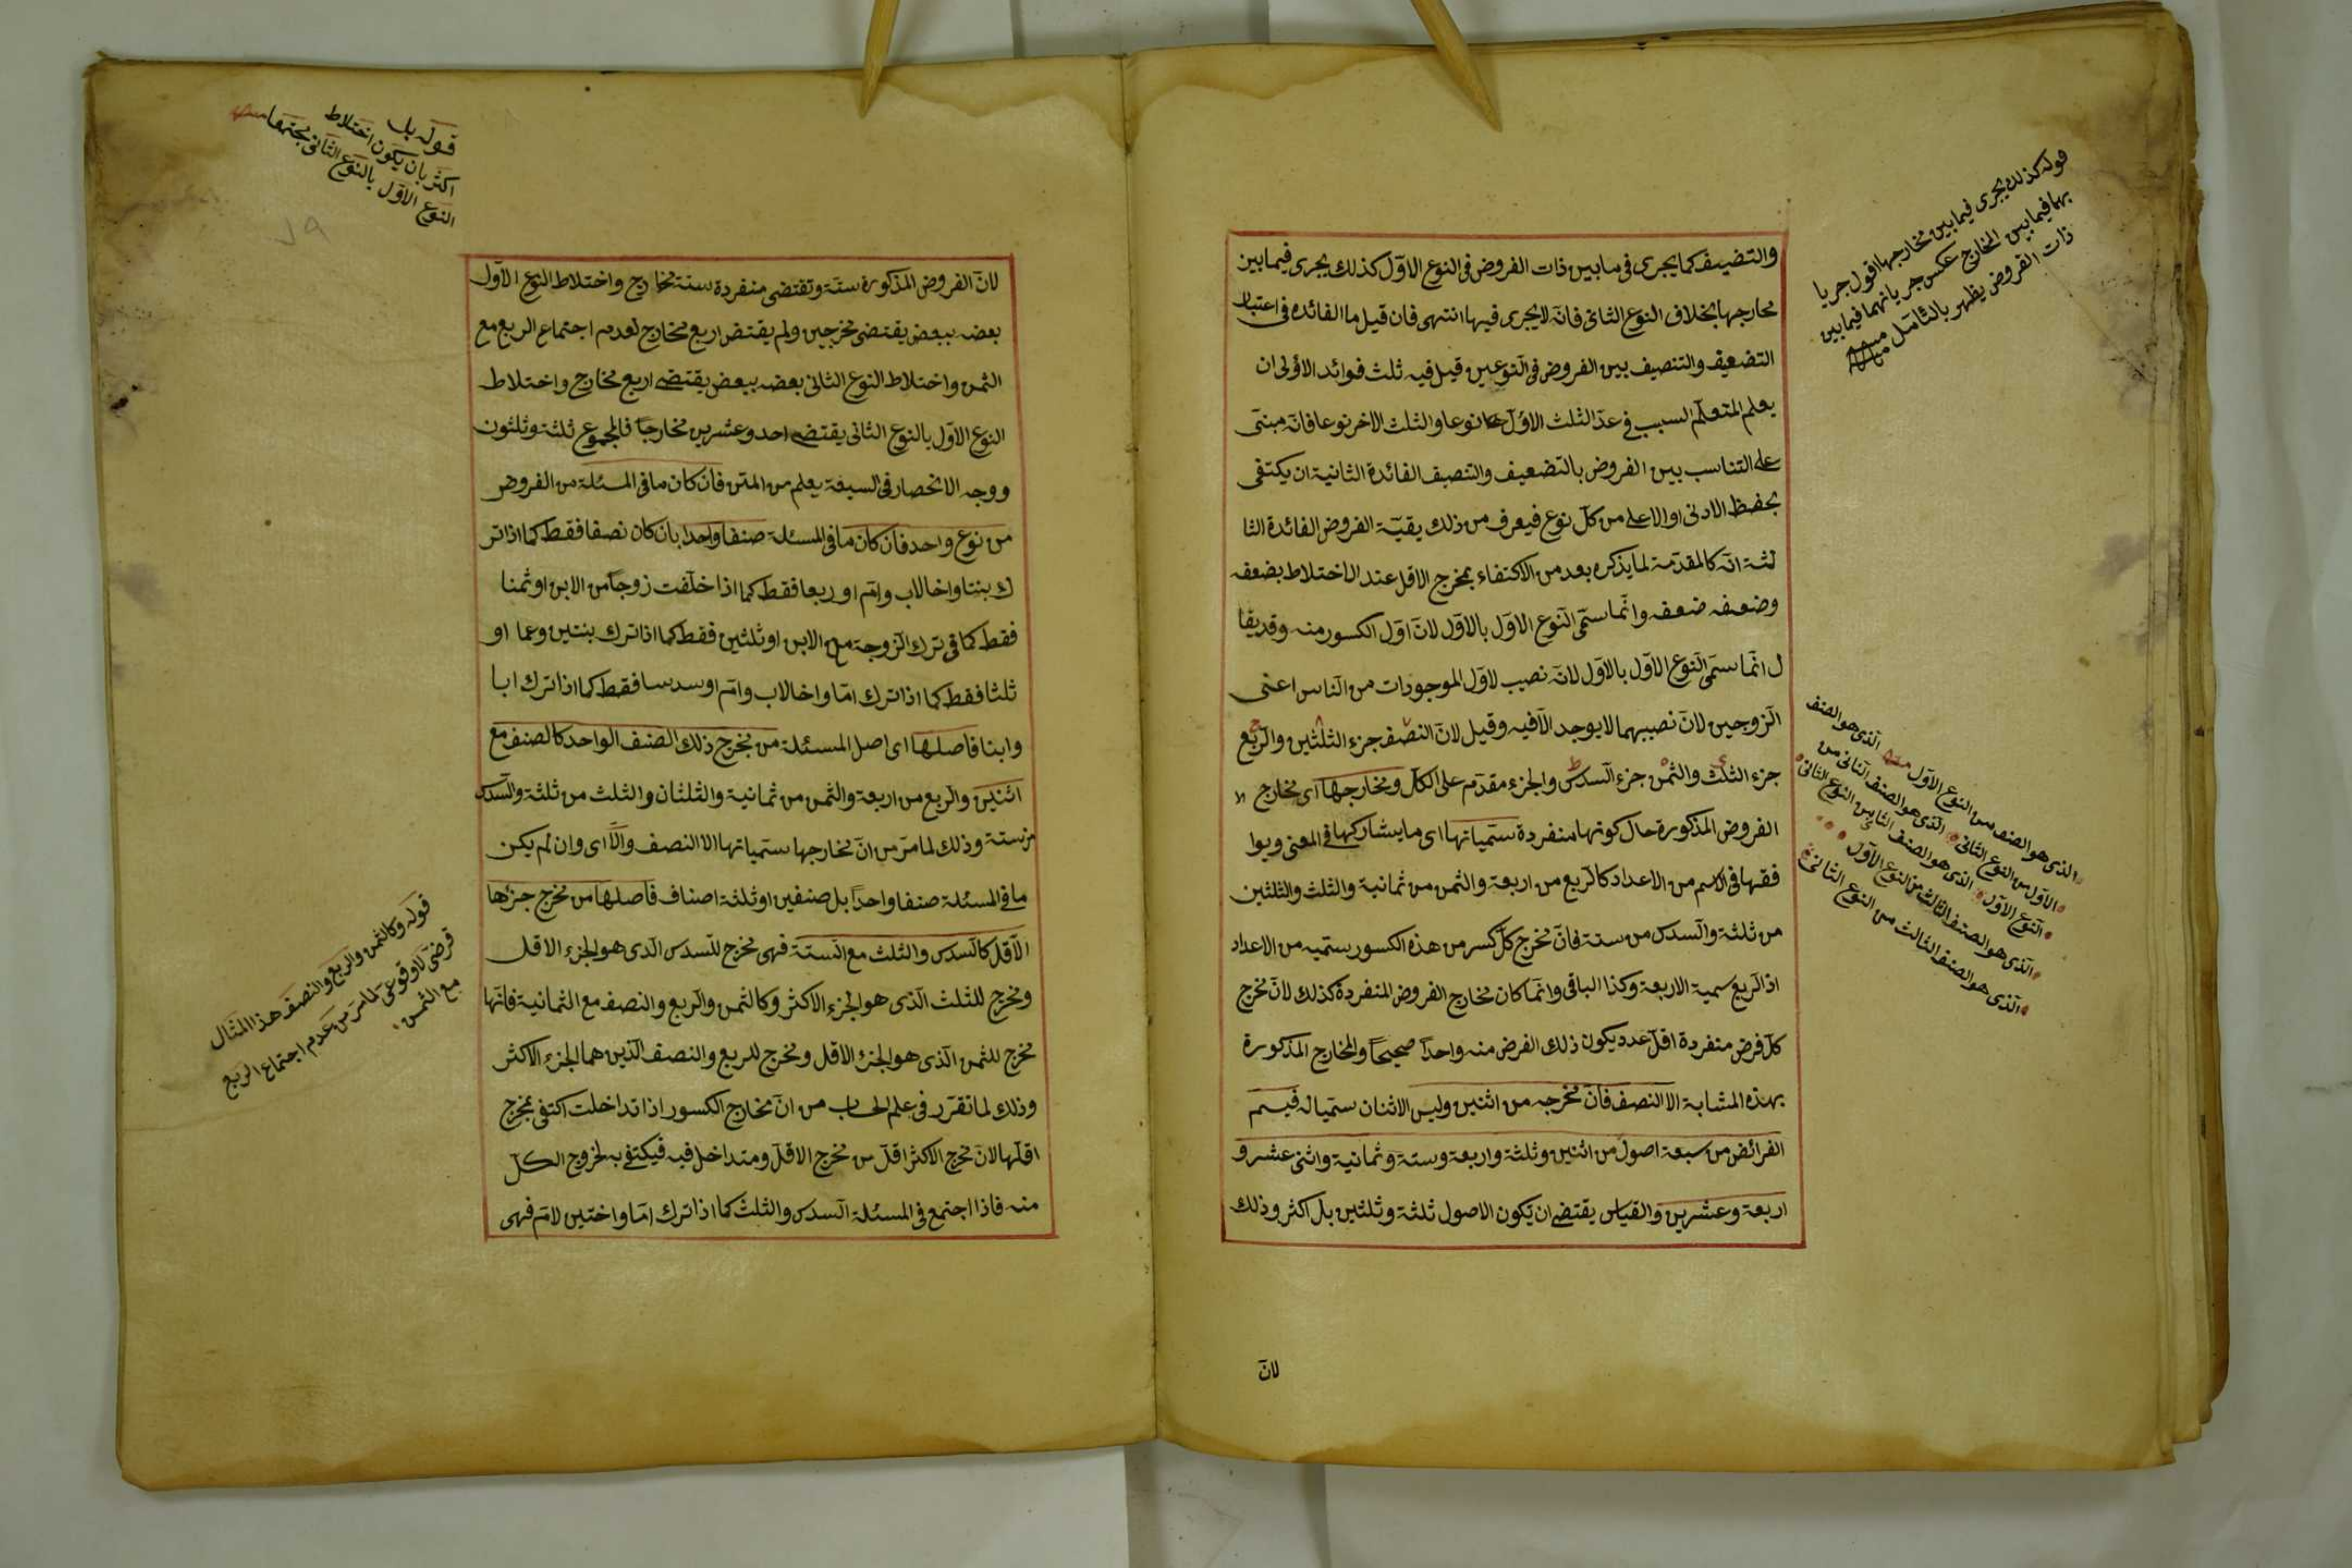 والتضيف كما يجرى فى ما بين ذات الفروض فى النوع الاوّل كذلك يجرى فيما بين
مخارجها بخلاف النوع الثانى فانّه لا يجرى فيها انتهى فان قيل ما الفائده فى اعتبار
التضعيف والتنصيف بين الفروض فى النّوعين قيل فيه ثلث فوائد الاولى ان
يعلم المتعلّم السبب فى عدّ الثلث الاوّل نوعا والثلث الاخر نوعا فانّه مبنىّ
على التناسب بين الفروض بالتضعيف والتنصيف الفائدة الثانية ان يكتفى
بحفظ الادنى او الاعلى من كلّ نوع فيعرف من ذلك بقيّة الفروض الفائدة الثا
لثة انّه كالمقدّمة لما يذكره بعد من الاكتفاء بمخرج الاقل عند الاختلاط بضعفه
وضعفه ضعفه وانّما سمّى النّوع الاوّل بالاوّل لانّ اوّل الكسور منه وقد يقا
ل انّما سمّى النّوع الاوّل بالاوّل لانّه نصيب لاوّل الموجودات من النّاس اعنى
الزّوجين لانّ نصيبهما لا يوجد الّا فيه وقيل لانّ النصّف جزء الثلثين والربّع
جزء الثلث والثّمن جزء السّدس والجزء مقدّم على الكلّ ومخارجها اى مخارج
الفروض المذكورة حال كونها منفردة سمّياتها اى ما يشاركها فى المعنى ويوا
فقها فى الاسم من الاعداد كالرّبع من اربعة والثمن من ثمانية والثلث والثلثين
من ثلثة والسّدس من ستة فانّ مخرج كلّ كسر من هذه الكسور سميّه من الاعداد
اذ الرّبع سمية الاربعة وكذا الباقى وانّما كان مخارج الفروض المنفردة كذلك لانّ مخرج
كلّ فرض منفردة اقلّ عدد يكون ذلك الفرض منه واحداً صحيحاً والمخارج المذكورة
بهذه المشابة الا النصف فانّ مخرجه من اثنين وليس الاثنان سميّا له فيسم
الفرائض من سبعة اصول من اثنين وثلثة واربعة وستة وثمانية واثنى عشر و
اربعة وعشرين والقياس يقتضى ان يكون الاصول ثلثة وثلثين بل اكثر وذلك
لانّ
قوله كذلك يجرى فيما بين مخارجها اقول جريا
بهما فيما بين المخارج عكس جريانهما فيما بين
ذات الفروض يظهر بالتّأمّل منه
الذى هو الصنف
الذى هو الصنف من النوع الاوّل منه
الاوّل من النوع الثانى الذى هو الصنف الثانى من
النّوع الاوّل الذى هو الصنف الثانى من النوع الثانى
الّذى هو الصنف الثالث من النوع الاوّل
الّذى هو الصنف الثالث من النوع الثانى
لانّ الفروض المذكورة ستّة وتقتضى منفردة ستة مخارج واختلاط النوع الاوّل
بعضه ببعض يقتضى مخرجين ولم يقتض اربع مخارج لعدم اجتماع الربع مع
الثمن واختلاط النوع الثانى بعضه ببعض يقتضى اربع مخارج واختلاط
النوع الاوّل بالنوع الثانى يقتضى احد وعشرين مخارجاً فالمجموع ثلثة وثلثون
ووجه الانحصار فى السبعة يعلم من المتن فان كان ما فى المسئلة من الفروض
من نوع واحد فان كان ما فى المسئلة صنفا واحدا بان كان نصفا فقط كما اذا تر
ك بنتا واخا لاب وامّ او ربعا فقط كما اذا خلّفت زوجاً من الابن او ثمنا
فقط كما فى ترك الزّوجة مع الابن او ثلثين فقط كما اذا ترك بنتين وعما او
ثلثا فقط كما اذا ترك امّا واخا لاب وامّ او سدسا فقط كما اذا ترك ابا
وابنا فاصلها اى اصل المسئلة من مخرج ذلك الصنف الواحد كالصنف مع
اثنين والرّبع من اربعة والثمن من ثمانية والثلثان والثلث من ثلثة والسّدس
من ستة وذلك لما مرّ من انّ مخارجها سمّياتها الا النصف والّا اى وان لم يكن
ما فى المسئلة صنفا واحداً بل صنفين او ثلثة اصناف فاصلها من مخرج جزءها
الاقلّ كالسّدس والثلث مع السّتة فهى مخرج للسّدس الّذى هو الجزء الاقل
ومخرج للثلث الّذى هو الجزء الاكثر وكالثّمن والرّبع والنصف مع الثمانية فانّها
مخرج للثمن الّذى هو الجزء الاقل ومخرج للربع والنصف الّذين هما الجزء الاكثر
وذلك لما تقرّر فى علم الحساب من انّ مخارج الكسور اذا تداخلت اكتفى بمخرج
اقلّها لانّ مخرج الاكثر اقلّ من مخرج الاقلّ ومتداخل فيه فيكتفى به لخروج الكلّ
منه فاذا اجتمع فى المسئلة السّدس والثلث كما اذا ترك امّا واختين لامّ فهى
قوله بل
اكثر بان يكون اختلاط
النوع الاوّل بالنوع الثانى مجتمعا منه
٧٩
قوله وكالثمن والربع والنصف هذا المثال
فرضىّ لا وقوعىّ لما مرّ من عدم اجتماع الربع
مع الثمن